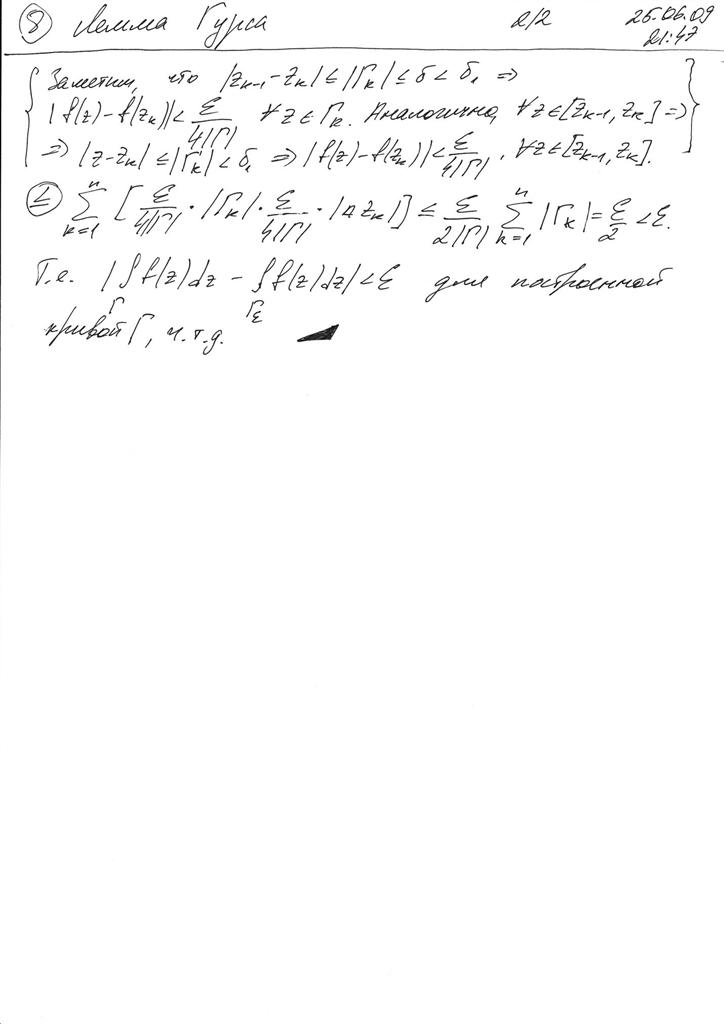 ⑧ Лемма Гурса 2/2 26.06.09
21:47
Заметим, что |z_{k-1} - z_k| ≤ |Γ_k| ≤ δ < δ_1 ⇒
|f(z) - f(z_k)| < ε/(4|Γ|) ∀z∈Γ_k. Аналогично, ∀z∈[z_{k-1}, z_k] ⇒
⇒ |z - z_k| ≤ |Γ_k| < δ_1 ⇒ |f(z) - f(z_k)| < ε/(4|Γ|), ∀z∈[z_{k-1}, z_k].
≤ ∑_{k=1}^{n} [ε/(4|Γ|) · |Γ_k| · ε/(4|Γ|) · |Δz_k|] ≤ ε/(2|Γ|) ∑_{k=1}^{n} |Γ_k| = ε/2 < ε.
Т.е. |∫_Γ f(z)dz - ∫_{Γ_ε} f(z)dz| < ε для построенной
кривой Γ, ч.т.д.